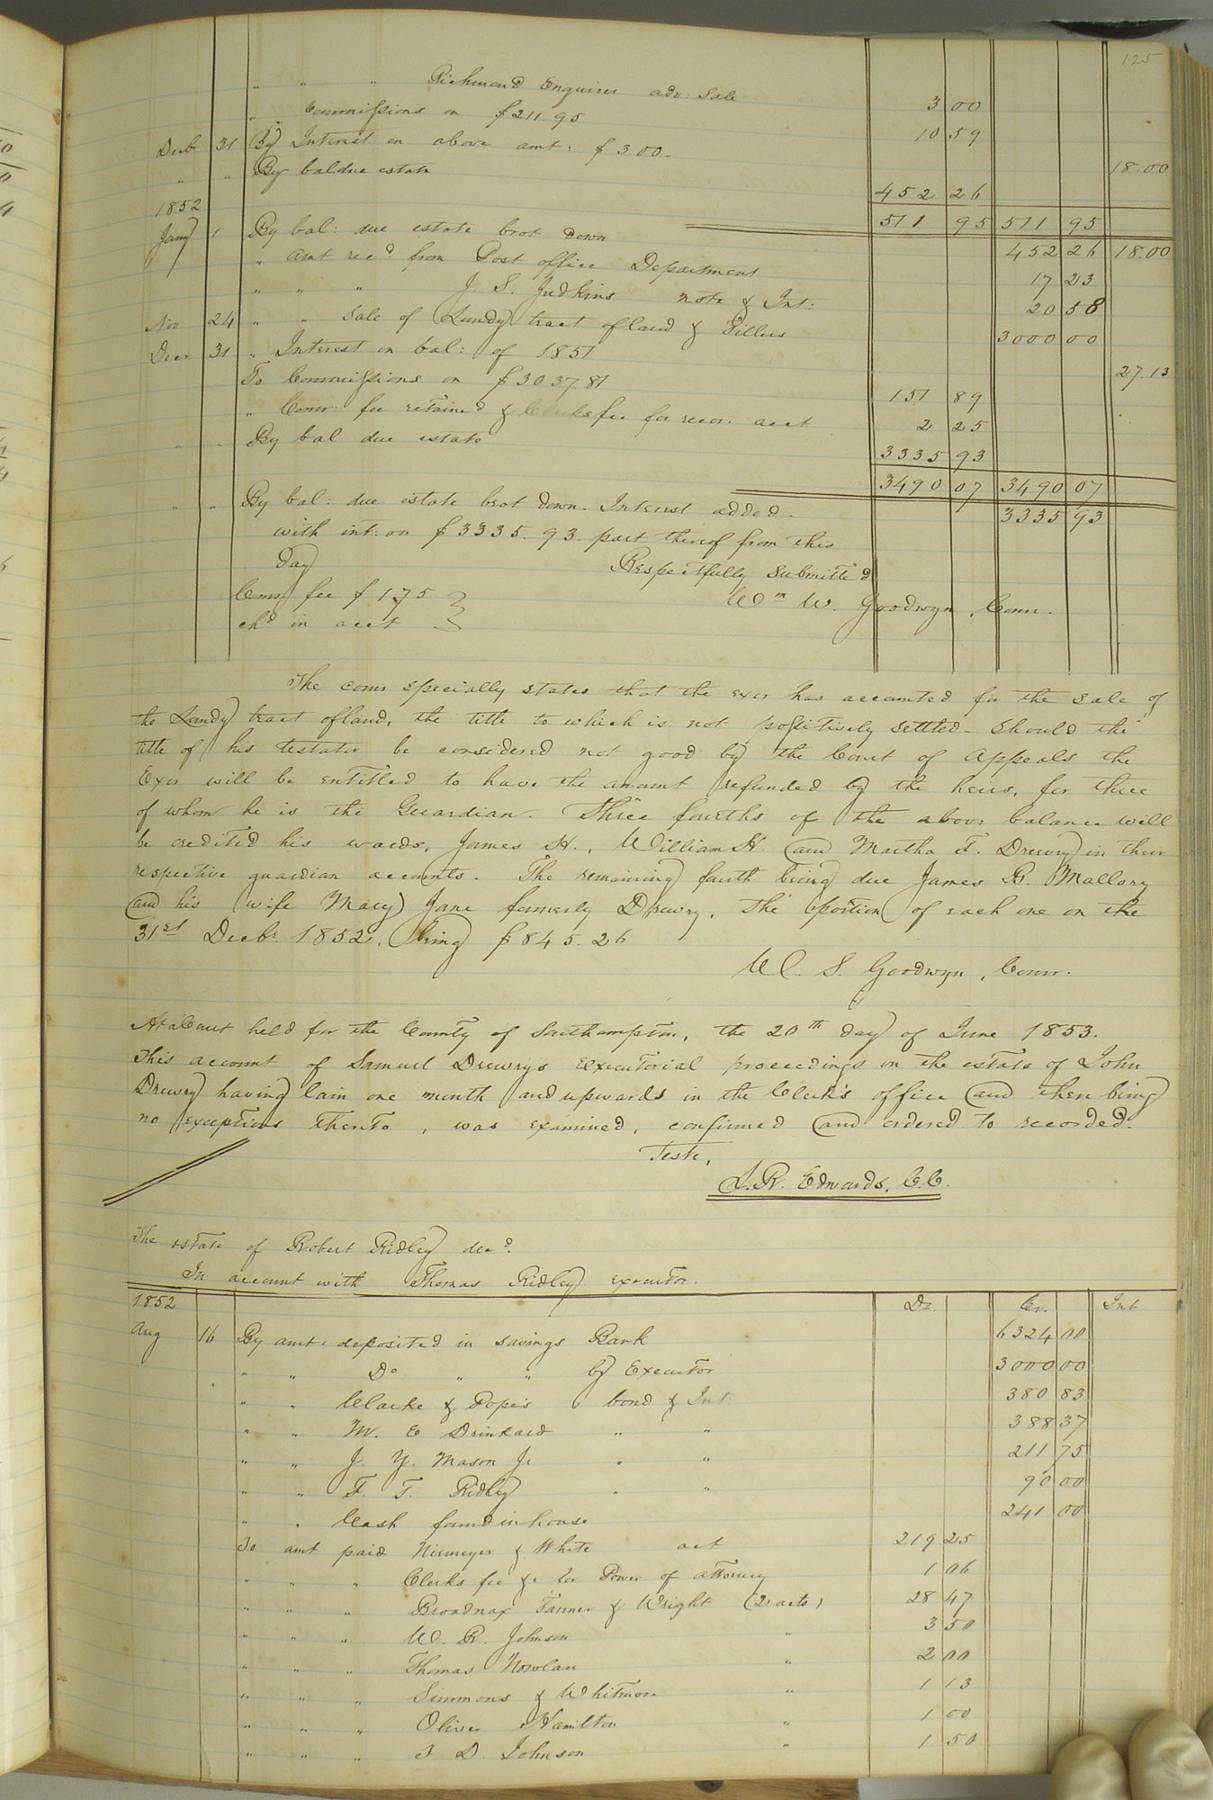 125
" " " Richmond Enquirer adv: Sale 3 00
" " Commissions on $211.95 10 59
Decb 31 By Interest on above amt: $300. 18.00
" " By bal due estate 452 26
511 95 511 95
1852
Jany 1 By bal: due estate brot down 452 26 18.00
" amt recd from Post office Department 17 23
" " " J. S. Judkins note & Int: 20 58
Nov 24 " " Sale of Lundy tract of land & 3000 00
Decr 31 " Interest on bal: of 1851 27.13
To Commissions on $3037.81 151 89
" Comr fee retained & Clerks fee for recor. acct 2 25
" " By bal due estate 3335 93
3490 07 3490 07
" " By bal: due estate brot down. Interest added. 3335 93
with int: on $3335.93 part thereof from this
day Respectfully Submitted
Comrs fee $1.75 Wm W. Goodwyn, Comr.
chd in acct
The comr specially states that the exor has accounted for the sale of
the Lundy tract of land, the title to which is not positively settled. Should the
title of his testator be considered not good by the Court of Appeals the
Exor will be entitled to have the amount refunded by the heirs, for three
of whom he is the Guardian. Three fourths of the above balance will
be credited his wards, James H., William H. and Martha F. Drewry in their
respective guardian accounts. The remaining fourth being due James B. Mallory
and his wife Mary Jane formerly Drewry, the portion of each one on the
31st Decbr. 1852, being $845.26
W. S. Goodwyn, Comr.
At a Court held for the County of Southampton, the 20th day of June 1853.
This account of Samuel Drewrys Executorial proceedings on the estate of John
Drewry having lain one month and upwards in the Clerk's office and there being
no exceptions thereto, was examined, confirmed and ordered to recorded.
Teste,
L. R. Edwards, C.C.
The estate of Robert Ridley decd.
In account with Thomas Ridley executor.
1852 Dr. Cr. Int
Aug 16 By amt. deposited in savings Bank 6324 00
" " Do " " by Executor 3000 00
" " Clarke & Pope's bond & Int: 380 83
" " M. E Drinkard " " 388 37
" " J. Y. Mason Jr " " 211 75
" " F. T. Ridley " " 90 00
" " Cash found in house 241 00
To amt paid Niemeyer & White act 219 25
" " " Clerks fee &c for Power of attorney 1 06
" " " Broadnax Tanner & Wright (2 acts) 28 47
" " " W. R. Johnson " 3 50
" " " Thomas Nowlan " 2 00
" " " Simmons & Whitmore " 1 13
" " " Oliver Hamilton " 1 00
" " " J D. Johnson " 1 50